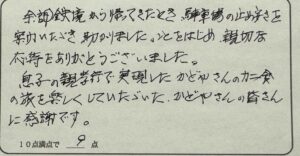 余部鉄橋から帰ってきたとき、駐車場の止め方を
案内いただき助かりました。
はじめ 親切な
応対をありがとうございました。
息子の親孝行で実現した かどやさんのカニ食
の旅を楽しくしていただいた、かどやさんの皆さん
に感謝です。
10点満点で 9 点